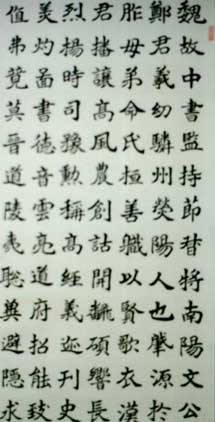 魏故中書監持節督將南陽文公
鄭君羲幼驎州滎陽人也肇源於
胙母弟命氏桓善職以賢歌衣漢
君播讓高風農創詁開翻碩響長
烈揚時司豫勳稱高經義迹刊史
美灼圖書德音雲亮道府招能致
值弗竟莫晉道陵夷聡冀避隱求